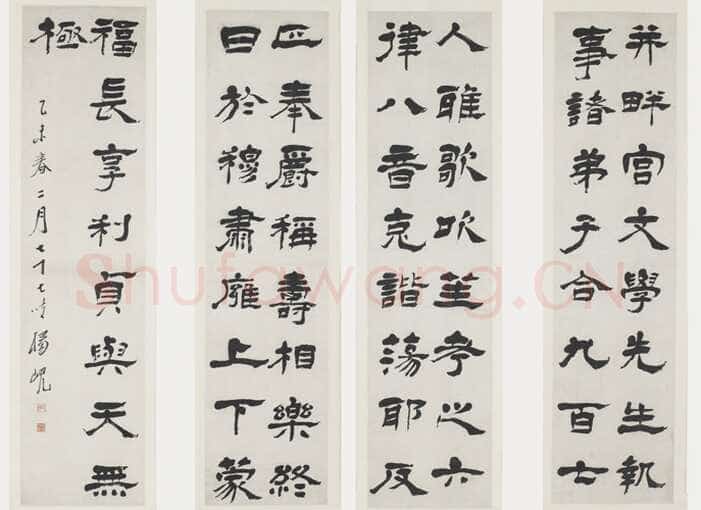 并畔宮文學先生執
事諸弟子合九百七
人雅歌吹笙考之六
律八音克諧蕩耶反
正奉爵稱壽相樂終
日於穆肅雍上下蒙
福長享利貞與天無
極
乙未春二月七十七叟楊峴
Shufawang.CN